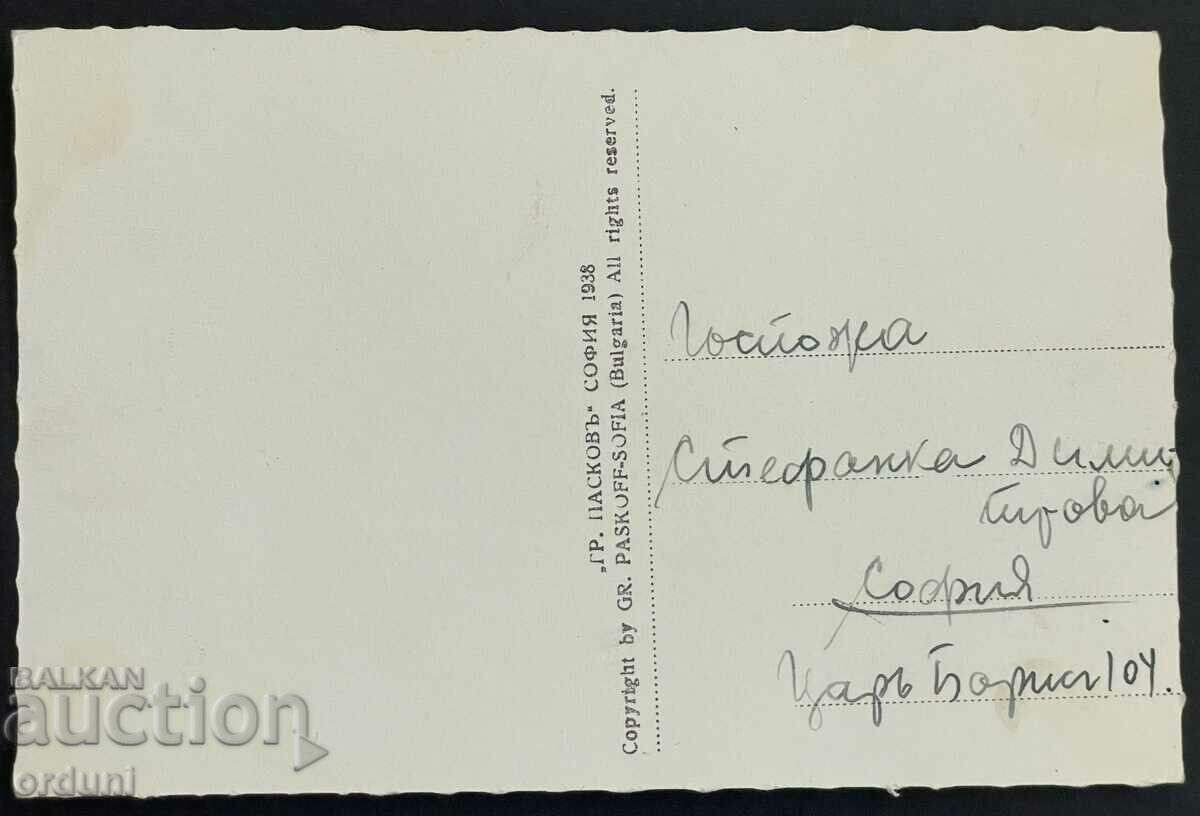 „ГР. ПАСКОВЪ“ СОФИЯ 1938
Copyright by GR. PASKOFF-SOFIA (Bulgaria) All rights reserved.
Госпожа
Стефанка Дими-
трова
София
Царь Борисъ 104.
BALKAN
auction
orduni